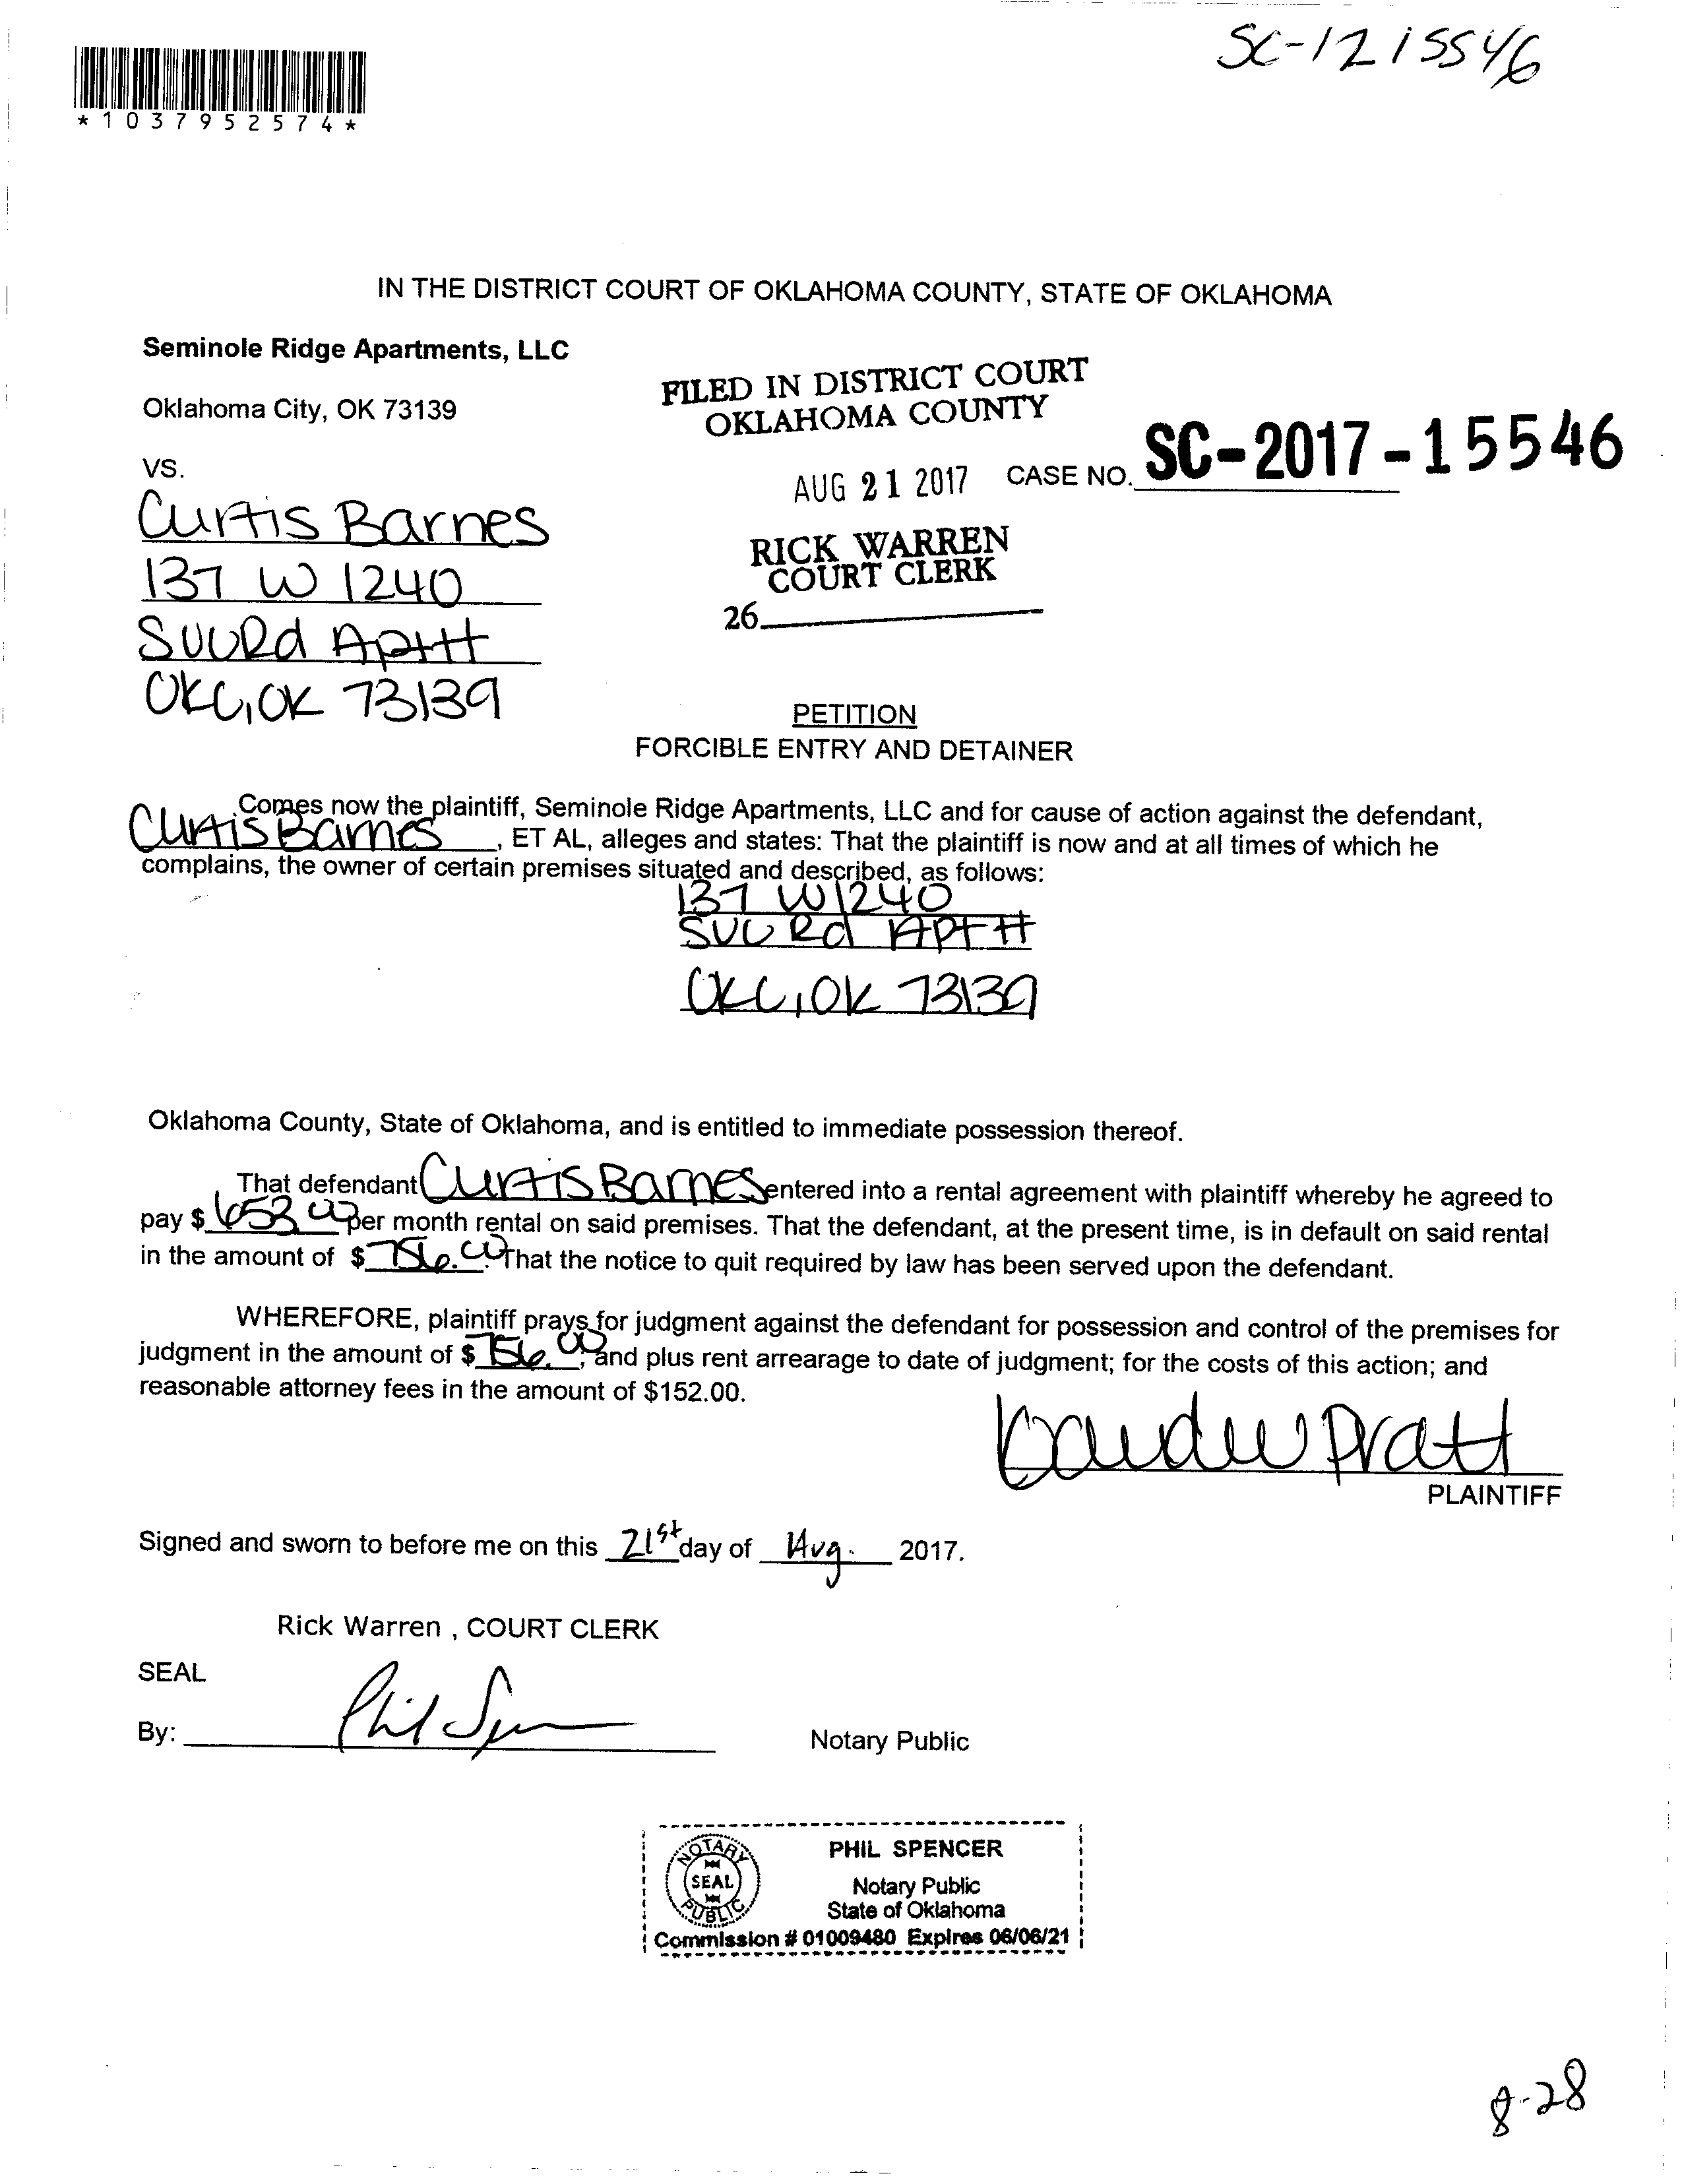 SC-1215546
*1037952574*
IN THE DISTRICT COURT OF OKLAHOMA COUNTY, STATE OF OKLAHOMA
Seminole Ridge Apartments, LLC
Oklahoma City, OK 73139
VS.
FILED IN DISTRICT COURT
OKLAHOMA COUNTY
AUG 21 2017
CASE NO. SC-2017-15546
RICK WARREN
COURT CLERK
26
Curtis Barnes
137 W 1240
Rd Apt H
OKC, OK 73139
PETITION
FORCIBLE ENTRY AND DETAINER
Comes now the plaintiff, Seminole Ridge Apartments, LLC and for cause of action against the defendant,
Curtis Barnes, ET AL, alleges and states: That the plaintiff is now and at all times of which he
complains, the owner of certain premises situated and described, as follows:
137 W 1240
Rd APT H
OKC, OK 73139
Oklahoma County, State of Oklahoma, and is entitled to immediate possession thereof.
That defendant Curtis Barnes entered into a rental agreement with plaintiff whereby he agreed to
pay $ 653.00 per month rental on said premises. That the defendant, at the present time, is in default on said rental
in the amount of $ 756.00. That the notice to quit required by law has been served upon the defendant.
WHEREFORE, plaintiff prays for judgment against the defendant for possession and control of the premises for
judgment in the amount of $ 756.00, and plus rent arrearage to date of judgment; for the costs of this action; and
reasonable attorney fees in the amount of $152.00.
Pratt
PLAINTIFF
Signed and sworn to before me on this 21st day of Aug. 2017.
Rick Warren , COURT CLERK
SEAL
By: Phil Spencer
Notary Public
NOTARY
SEAL
PUBLIC
PHIL SPENCER
Notary Public
State of Oklahoma
Commission # 01009480 Expires 06/06/21
8-28